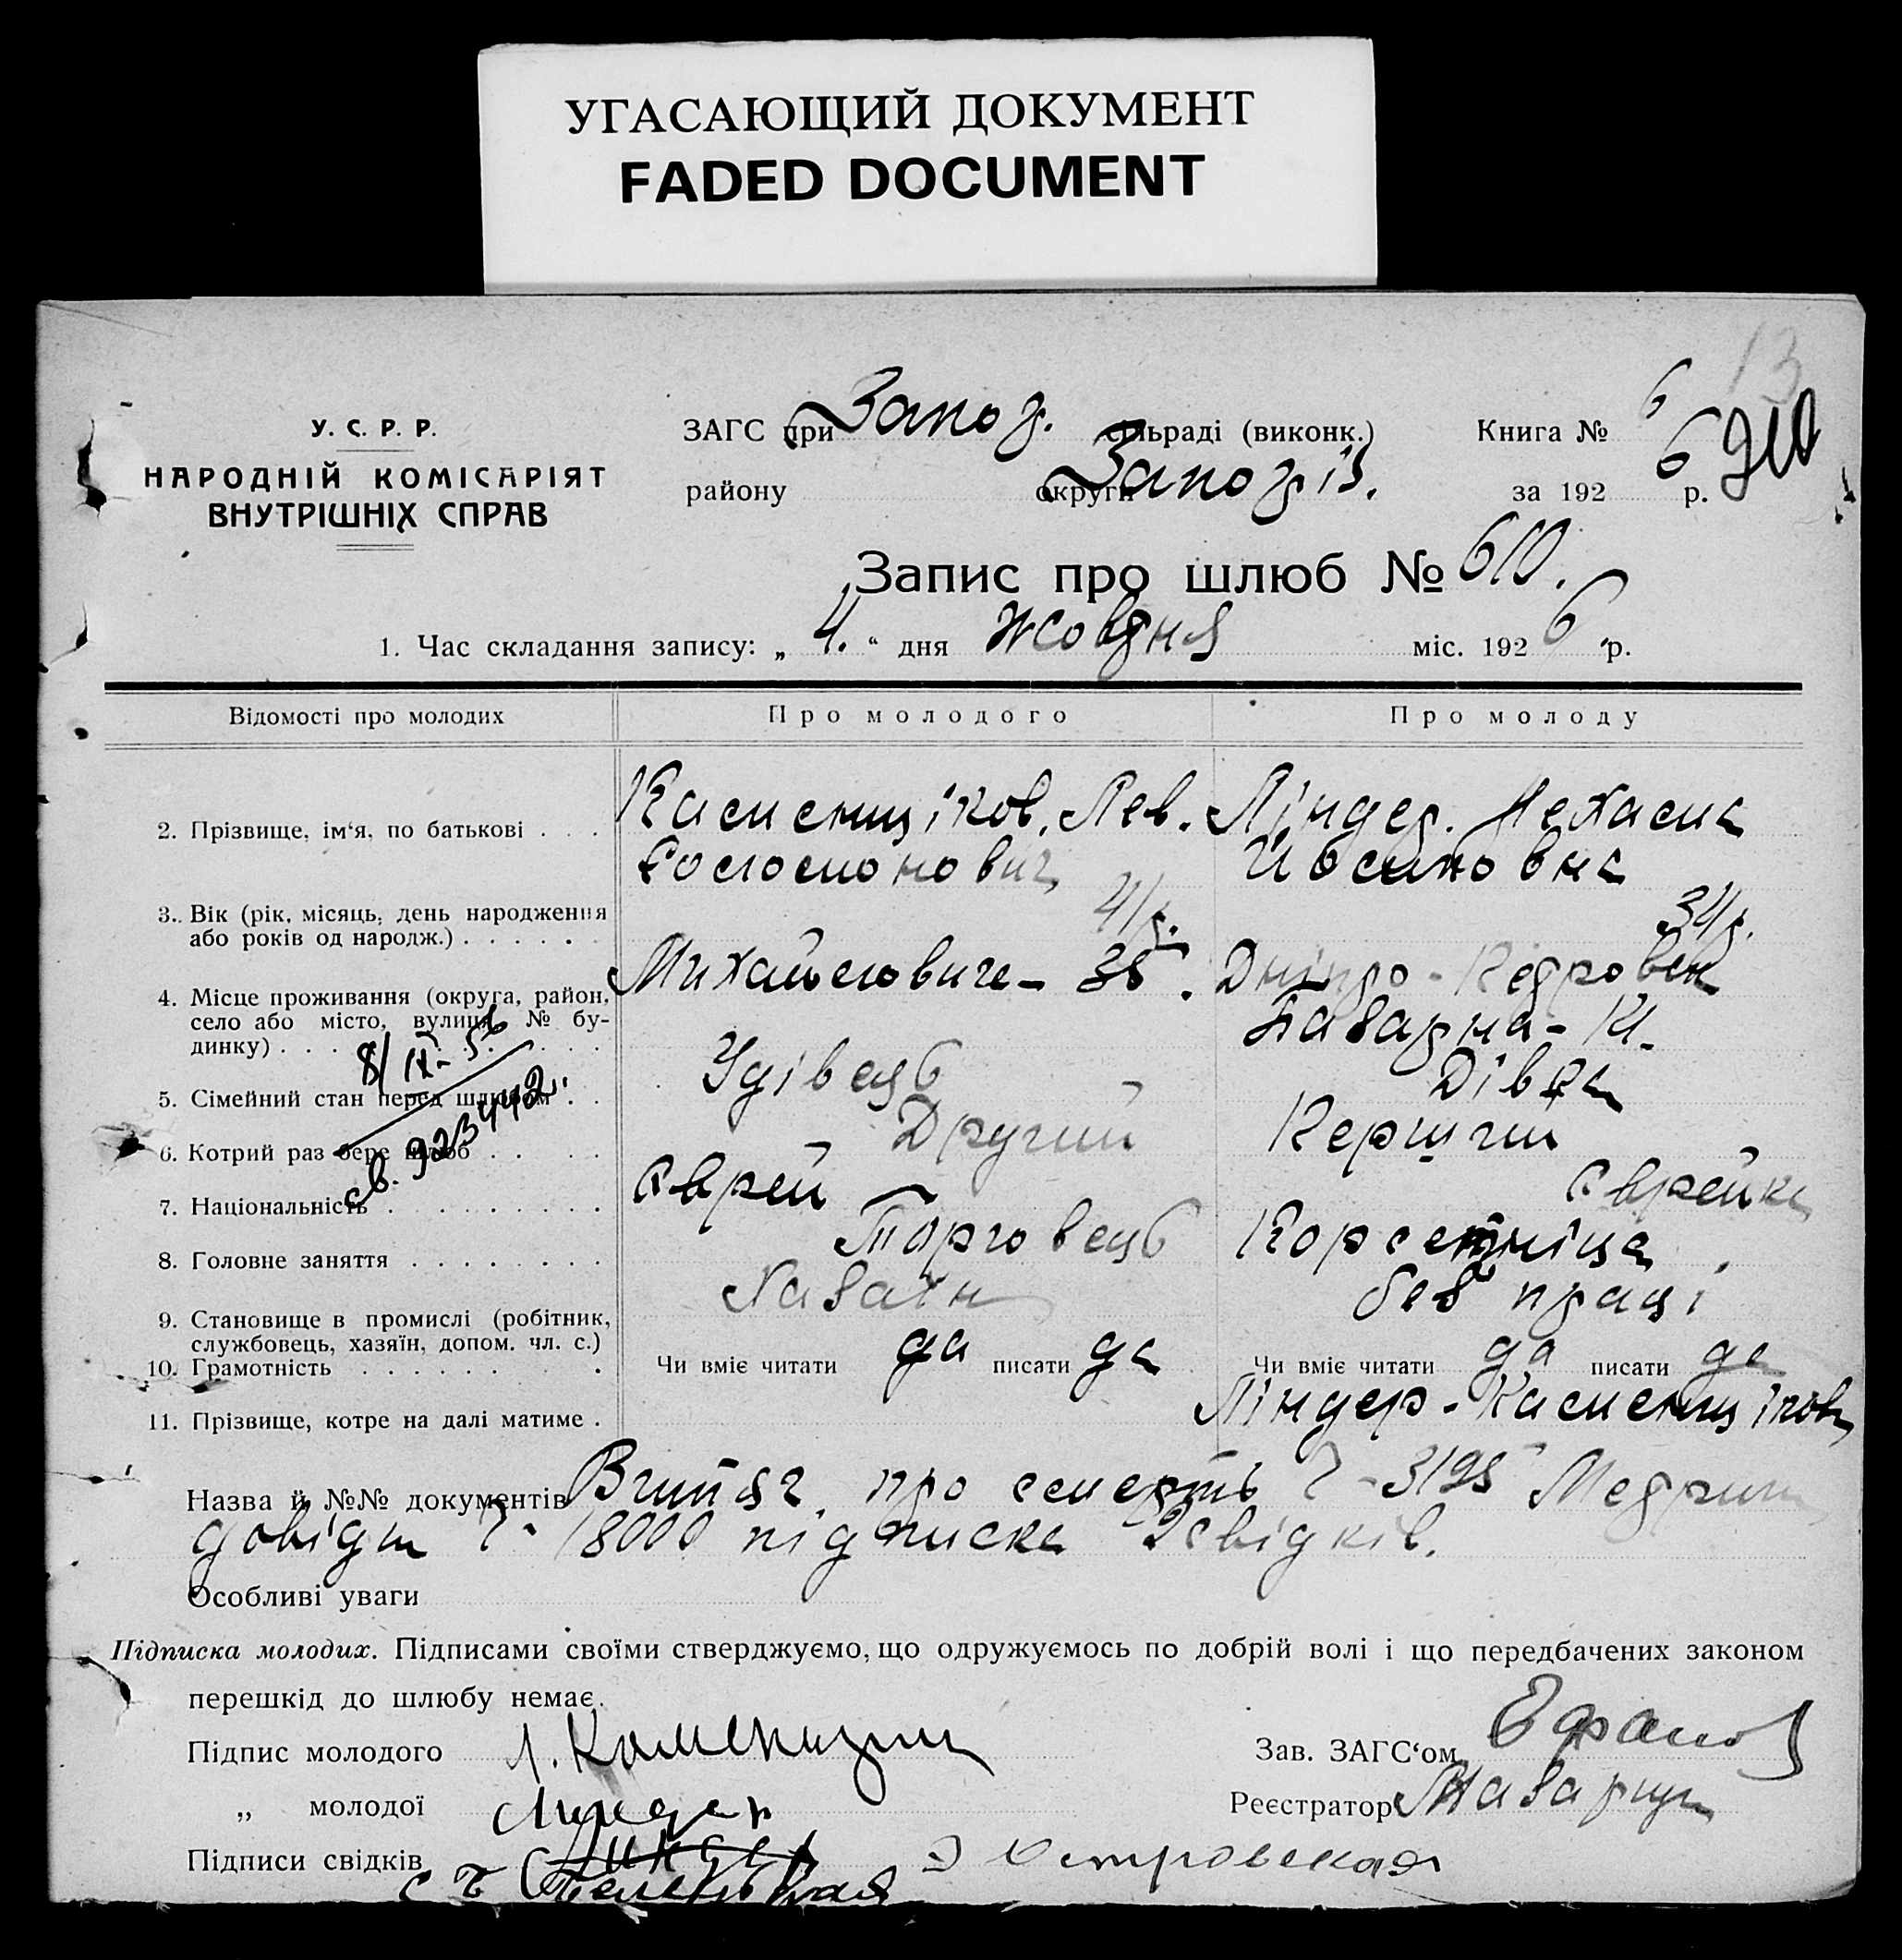 УГАСАЮЩИЙ ДОКУМЕНТ
FADED DOCUMENT
13
У. С. Р. Р.
НАРОДНІЙ КОМІСАРІЯТ
ВНУТРІШНІХ СПРАВ
ЗАГС при Запор. сільраді (виконк.) Книга № 6
району округи Запоріз. за 192 6 р.
Запис про шлюб № 610.
1. Час складання запису: „ 4. “ дня Жовтня міс. 192 6 р.
Відомості про молодих Про молодого Про молоду
2. Прізвище, ім‘я, по батькові . . . Лев. Ліндер.
Йосиповна
3. Вік (рік, місяць, день народження
або років од народж.) . . . . . . 41 р. 34 р.
4. Місце проживання (округа, район,
село або місто, вулиця, № бу-
динку) . . . . . . . . . .
Базарна
8/IX-56
св. 923442.
5. Сімейний стан перед шлюбом . . Удівець Дівка
6. Котрий раз бере шлюб . . . . Другий Перший
7. Національність . . . . . . . . . Єврей Єврейка
8. Головне заняття . . . . . . . . Торговець Корсетніца
9. Становище в промислі (робітник,
службовець, хазяїн, допом. чл. с.) Хазаїн без праці
10. Грамотність . . . . . . . Чи вміє читати да писати да Чи вміє читати да писати да
11. Прізвище, котре на далі матиме . Ліндер-
Назва й №№ документів Витяг про смерть Ч-3195
довідки Ч- 18000 підписка 2 свідків.
Особливі уваги
Підписка молодих. Підписами своїми стверджуємо, що одружуємось по добрій волі і що передбачених законом
перешкід до шлюбу немає.
Підпис молодого Зав. ЗАГС‘ом
„ молодої Линдер Реєстратор
Підписи свідків Островская